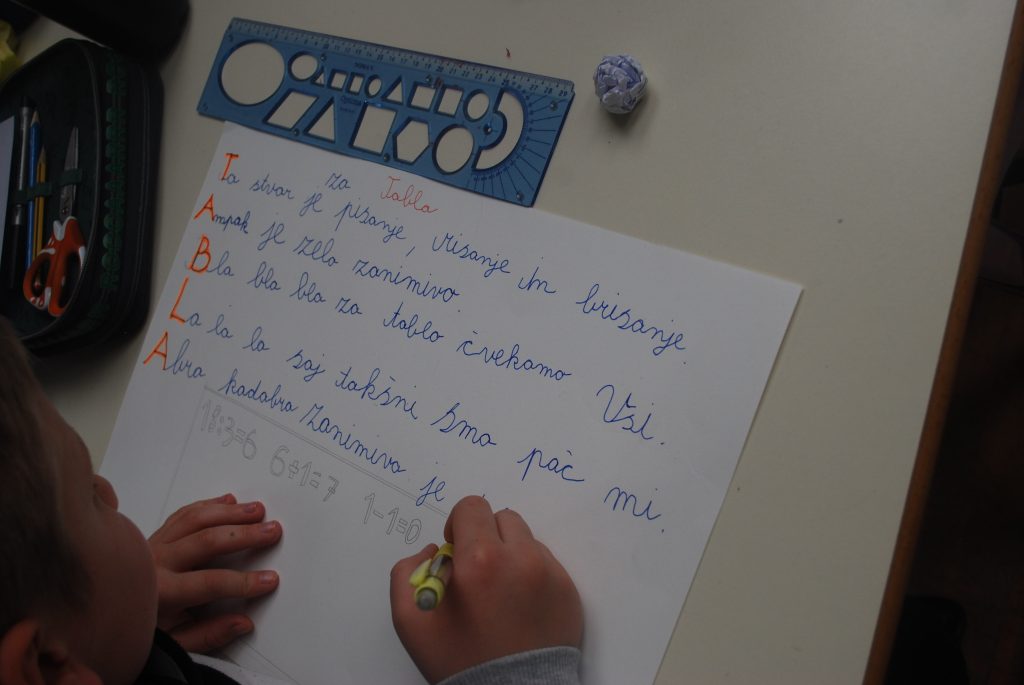 Tabla
za
Ta stvar je pisanje, risanje in brisanje.
Ampak je zelo zanimivo.
Bla bla bla za tablo čvekamo Vsi.
La la la saj takšni smo pač mi.
Abra kadabra zanimiva je
18:3=6 6+1=7 1-1=0